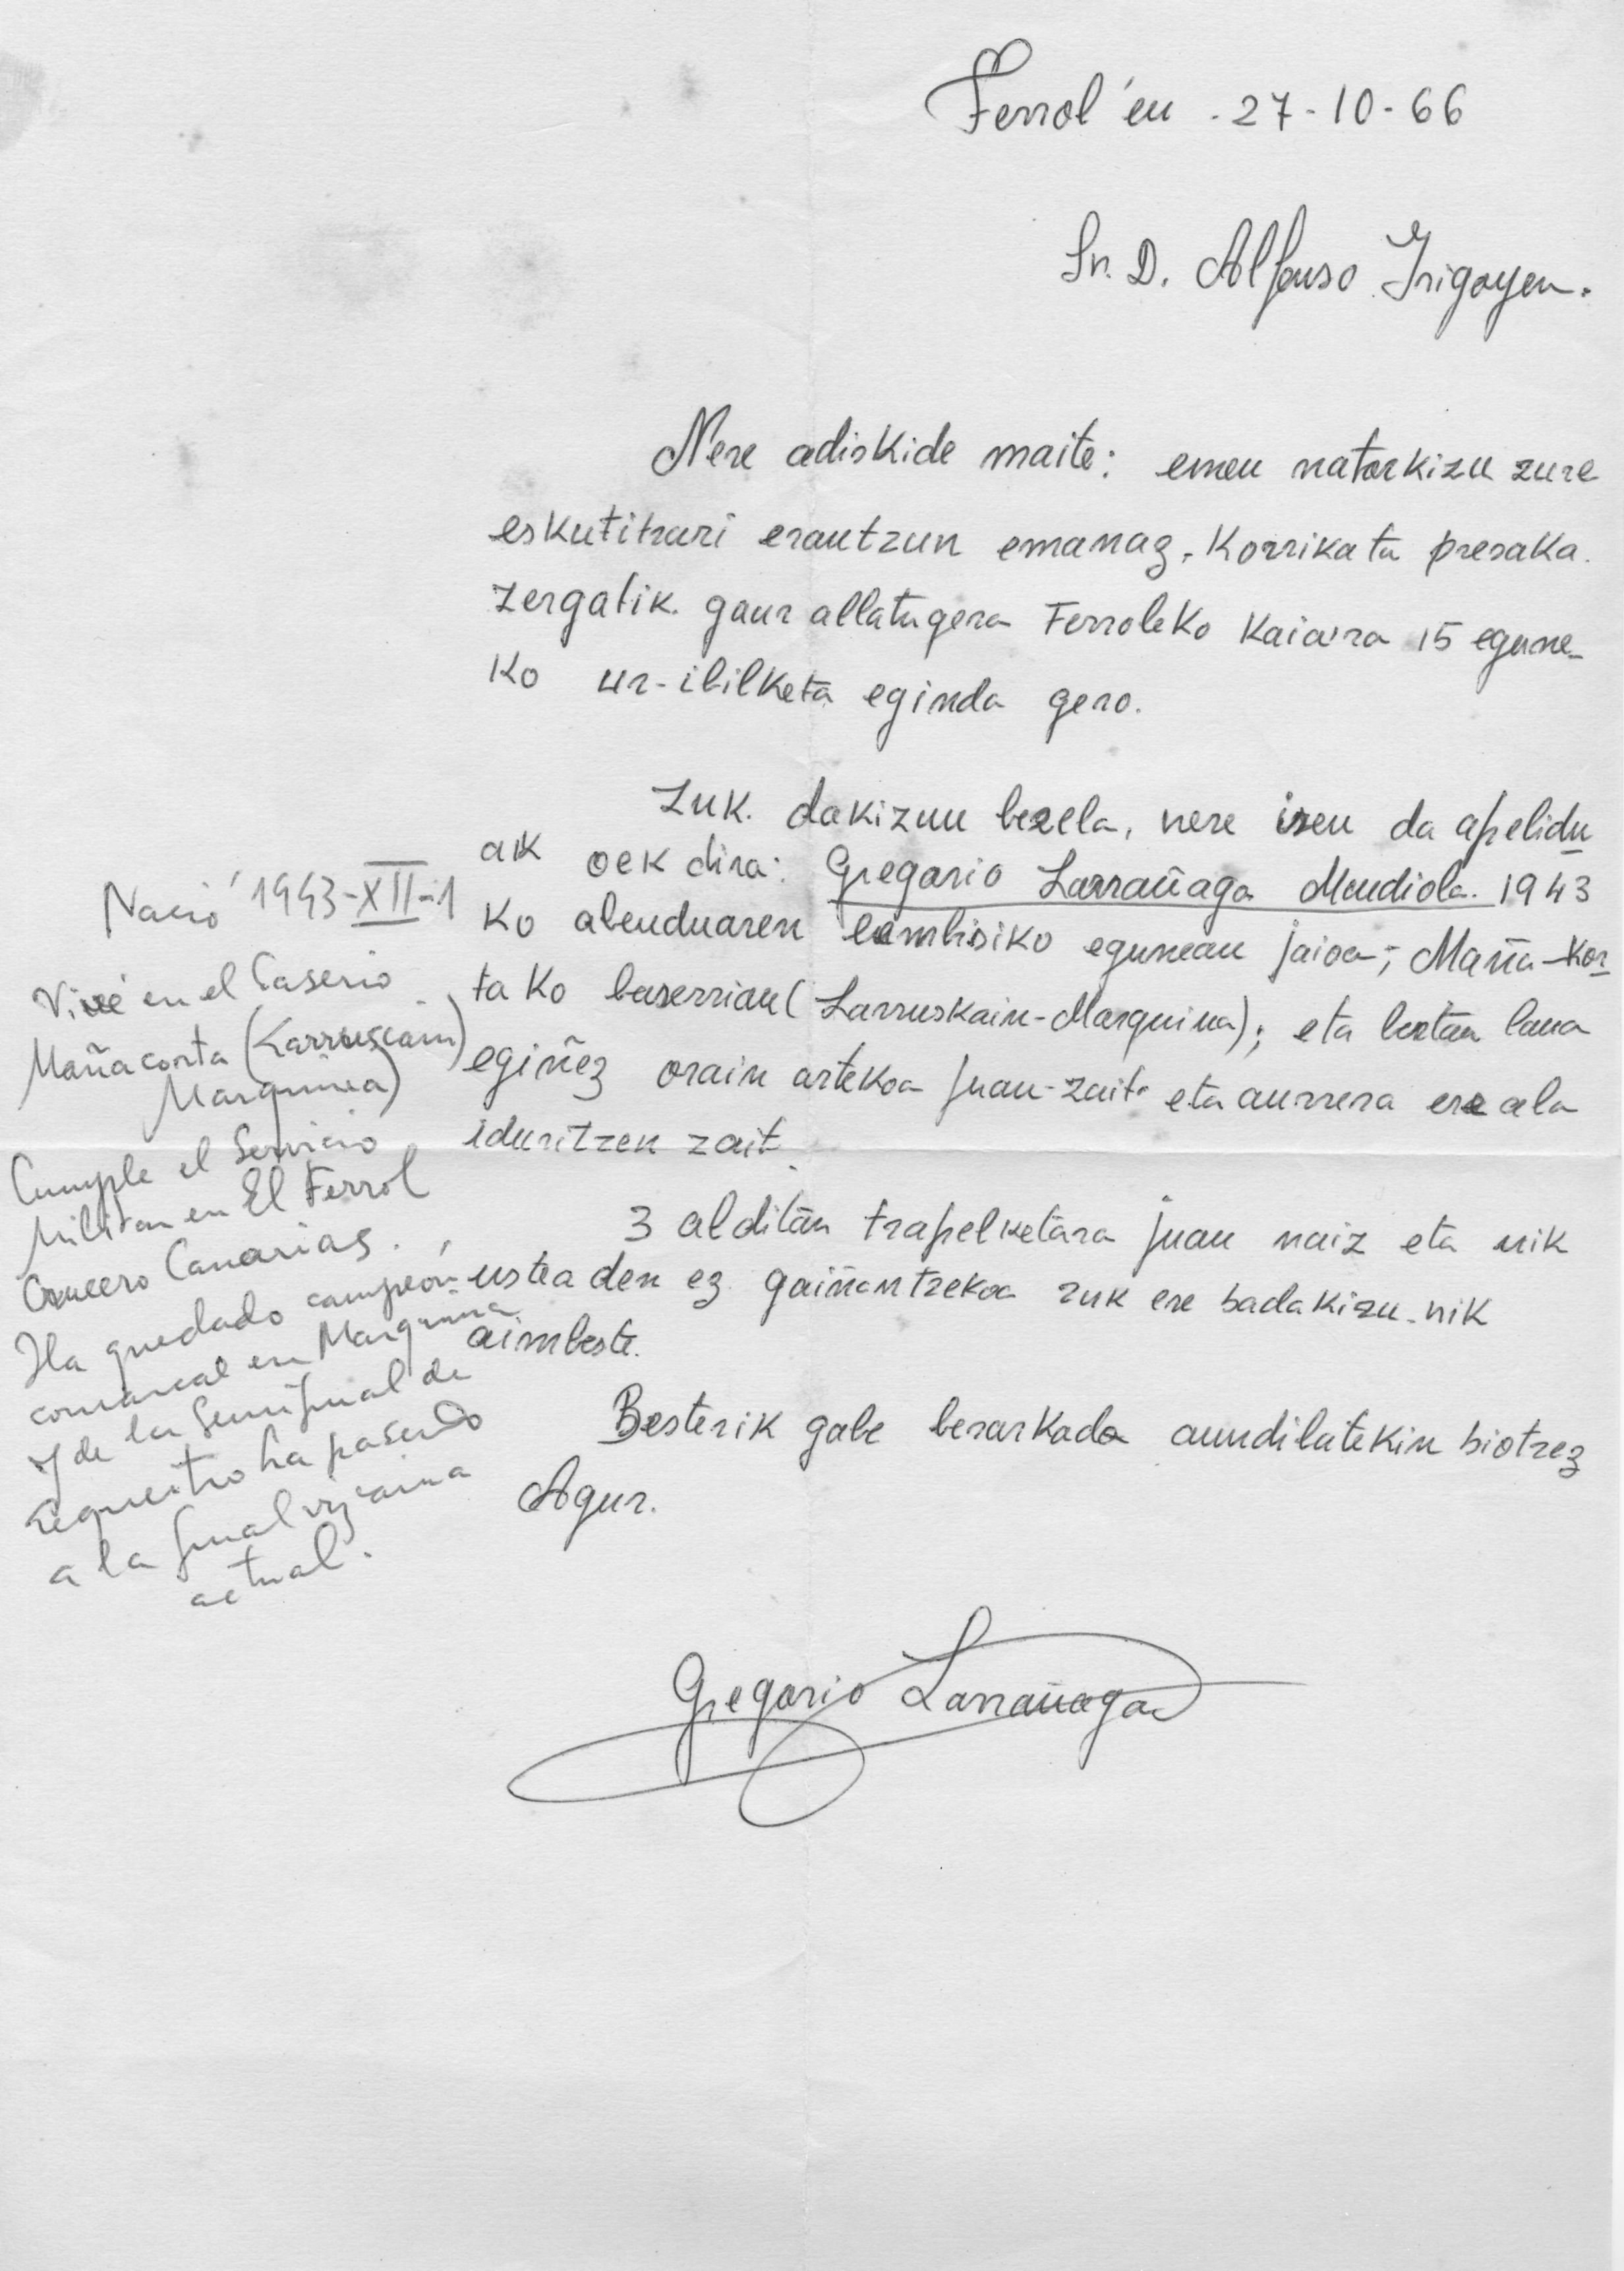 Ferrol'en - 27-10-66
Sr. D. Alfonso Irigoyen.
Nere adiskide maite: emen natorkizu zure
eskutitzari erautzun emanaz, Korrika ta presaka.
Zergatik. gaur allatu gera Ferroleko Kaiara 15 egune-
ko ur-ibilketa eginda gero.
Zuk. dakizun bezela, nere izen da apelidu
ak oek dira: Gregorio Larrañaga Mendiola. 1943
Ko abenduaren eguneau jaioa; Maña-Kor
ta Ko baserrian (Larruskain-Marquina); eta bertan lana
egiñez orain artekoa juan-zait eta aurrera ere ala
iduritzen zait.
3 alditan trapelketara juan naiz eta nik
ustea den ez gaiñantzekoa zuk ere badakizu-nik
aimbeste.
Besterik gabe besarkada aundibatekin biotzez
Agur.
Gregorio Larrañaga
Nació 1943-XII-1
Vive en el Caserio
Mañacorta (Larruscain)
Marquina)
Cumple el Servicio
Militar en El Ferrol
Crucero Canarias.
Ha quedado campeón
comarcal en Marquina
y de la Semifinal de
Requeitio ha pasado
a la final vizcaina
actual.